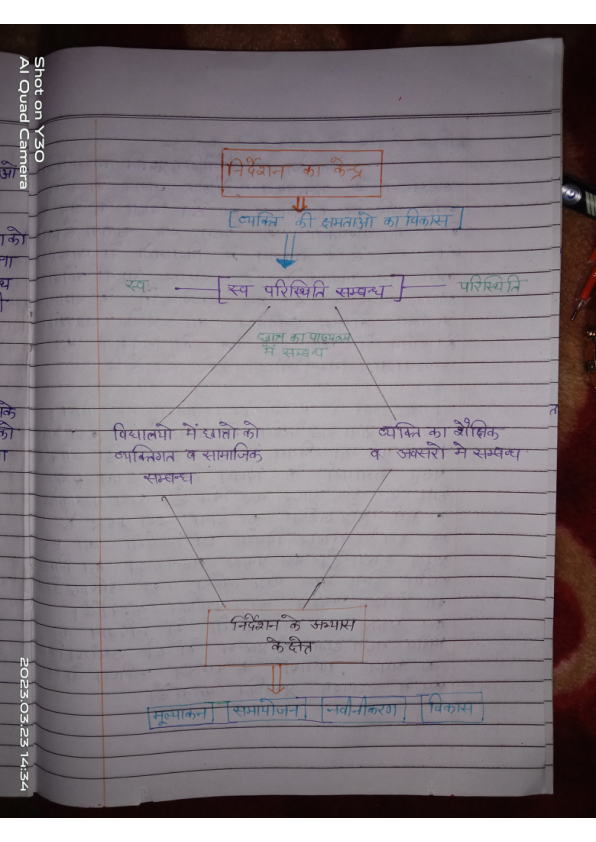 Shot on Y30
AI Quad Camera
निर्देशन का केन्द्र
[व्यक्ति की क्षमताओ का विकास]
स्वः [स्व परिस्थिति सम्बन्ध] परिस्थिति
छात्र का
मे सम्बन्ध
विद्यालयो में छात्रो को
व्यक्तिगत व सामाजिक
सम्बन्ध
व्यक्ति का शैक्षिक
व अवसरो मे सम्बन्ध
निर्देशन के अभ्यास
के क्षेत्र
मूल्याकन समायोजन नवीनीकरण विकास
2023.03.23 14:34